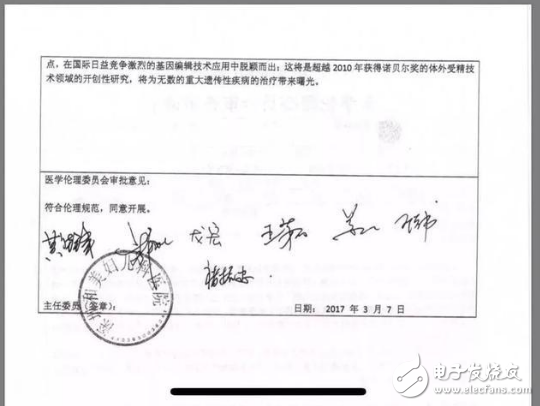 点，在国际日益竞争激烈的基因编辑技术应用中脱颖而出；这将是超越 2010 年获得诺贝尔奖的体外受精技
术领域的开创性研究，将为无数的重大遗传性疾病的治疗带来曙光。
医学伦理委员会审批意见：
符合伦理规范，同意开展。
深圳和美妇儿科医院
主任委员（签章）：
日期： 2017 年 3 月 7 日
电子发烧友